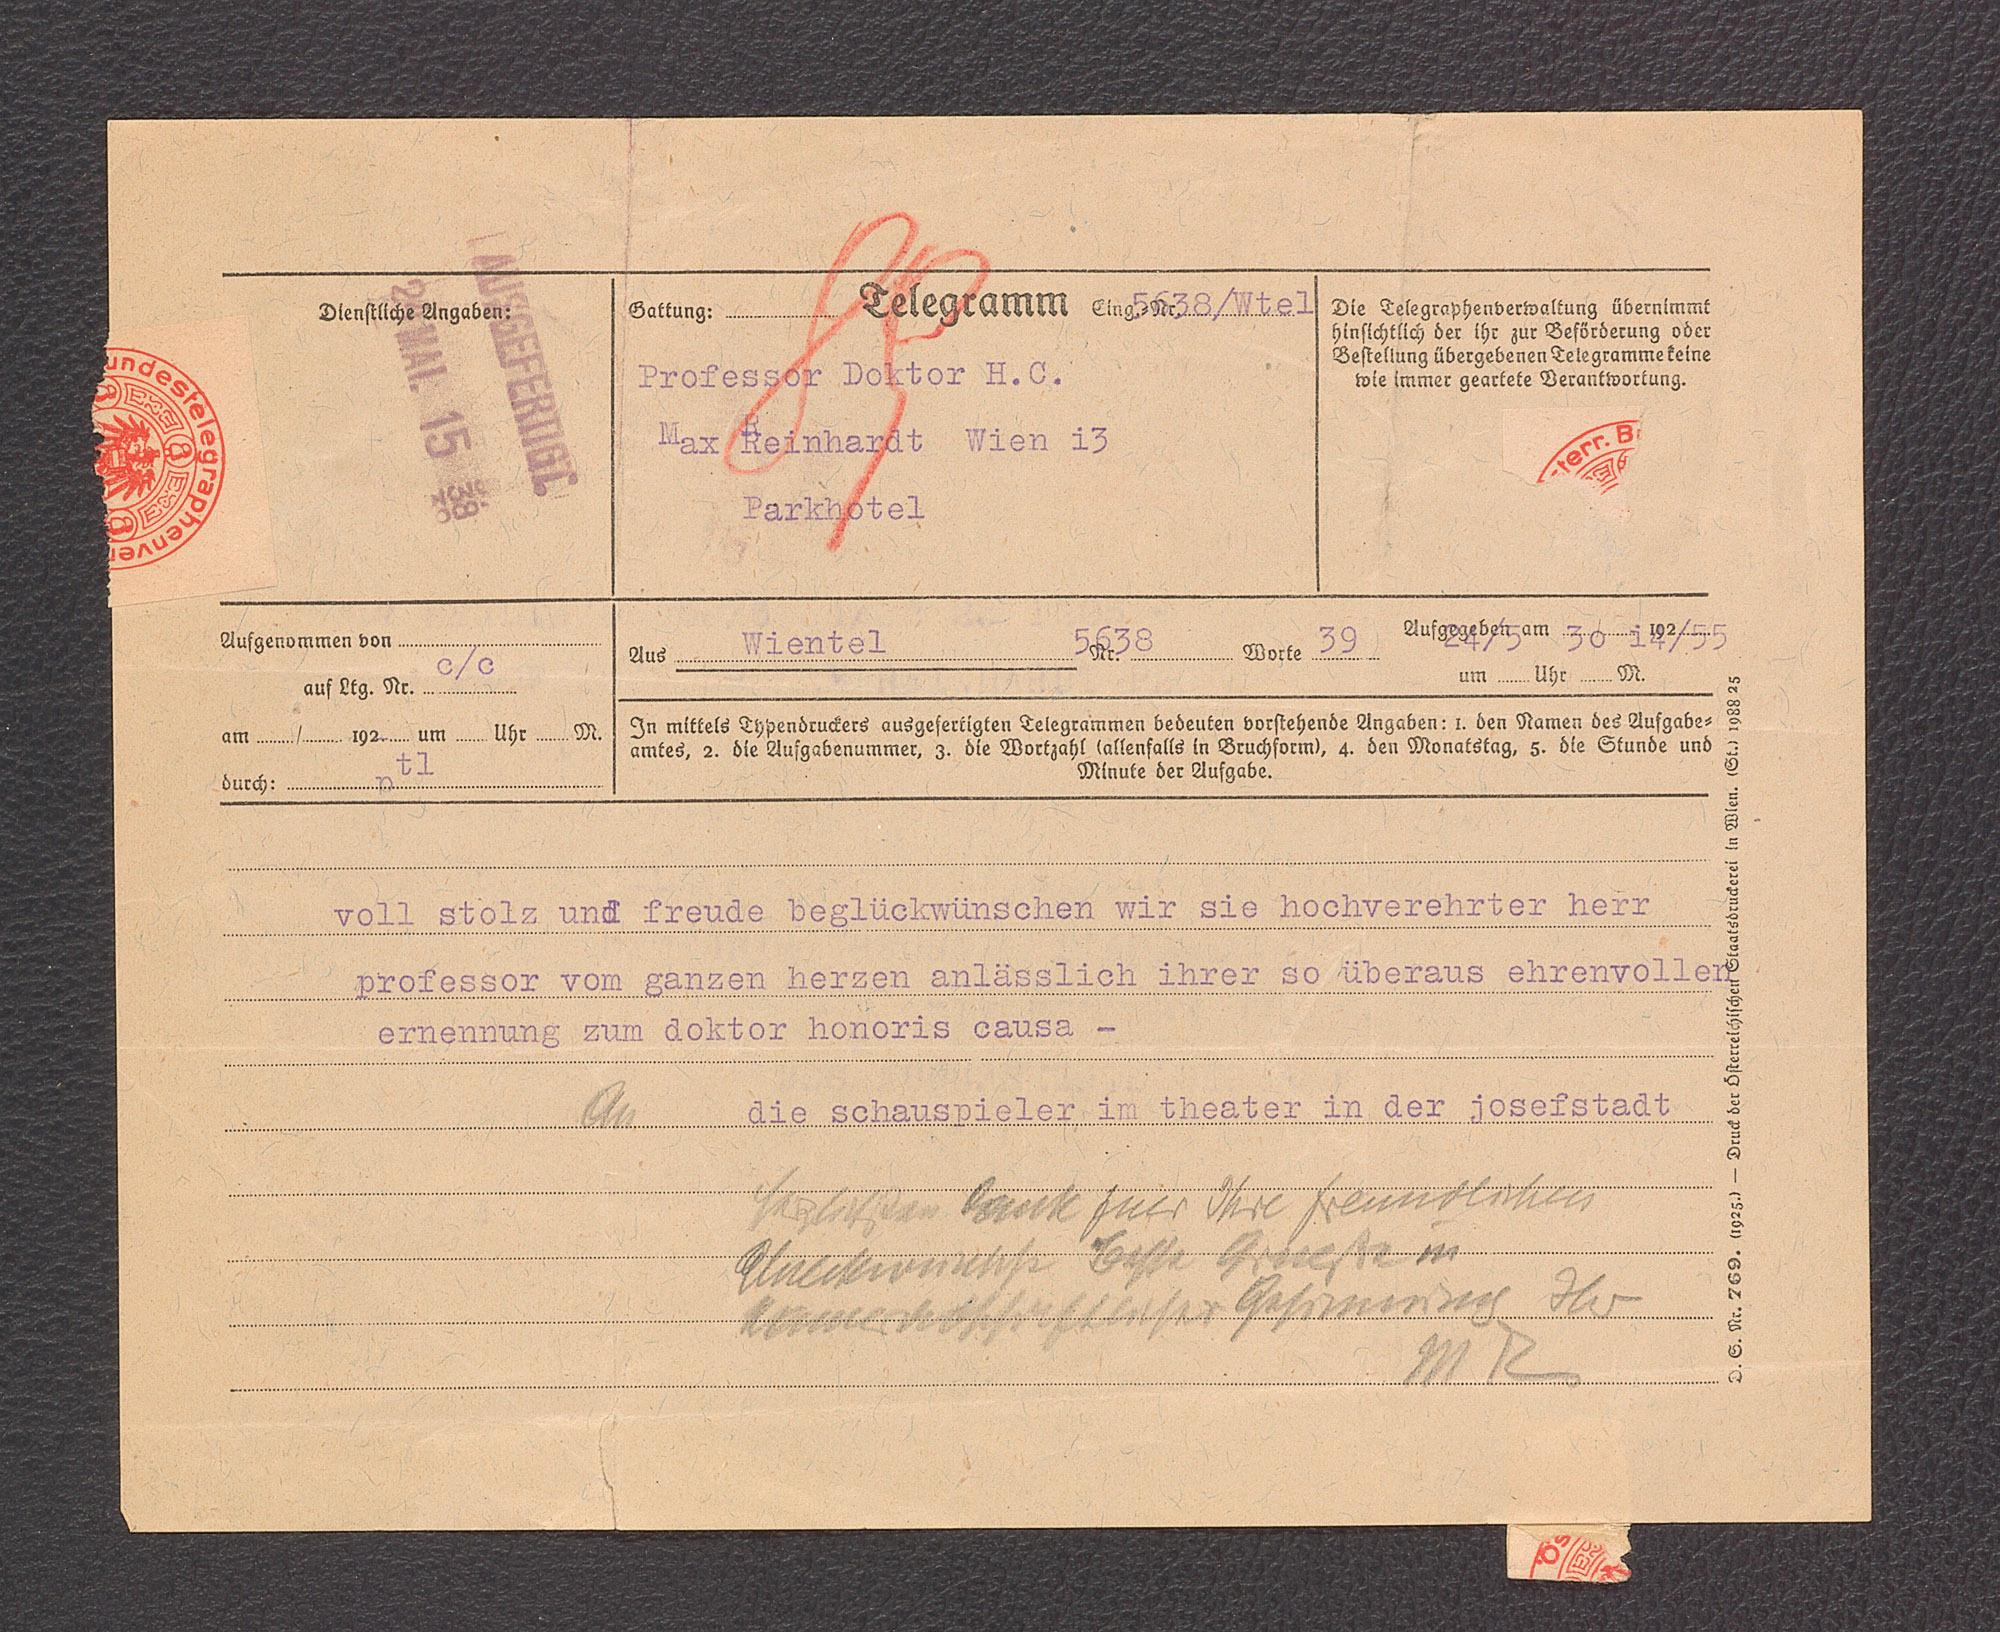 Dienstliche Angaben:
AUSGEFERTIGT.
MAI. 15
Gattung: Telegramm Eing.-Nr. 5638/Wtel
Professor Doktor H.C.
Max Reinhardt Wien i3
Parkhotel
Die Telegraphenverwaltung übernimmt
hinsichtlich der ihr zur Beförderung oder
Bestellung übergebenen Telegramme keine
wie immer geartete Verantwortung.
undestelegraphenver
terr. B
Aufgenommen von
c/c
auf Ltg. Nr.
am / 192 um Uhr M.
tl
durch: n
Aus Wientel Nr. 5638 Worte 39 Aufgegeben am 24/5 30 192 i4/55
um Uhr M.
In mittels Typendruckers ausgefertigten Telegrammen bedeuten vorstehende Angaben: 1. den Namen des Aufgabe-
amtes, 2. die Aufgabenummer, 3. die Wortzahl (allenfalls in Bruchform), 4. den Monatstag, 5. die Stunde und
Minute der Aufgabe.
voll stolz und freude beglückwünschen wir sie hochverehrter herr
professor vom ganzen herzen anlässlich ihrer so überaus ehrenvollen
ernennung zum doktor honoris causa -
An die schauspieler im theater in der josefstadt
herzlichsten Dank fuer Ihre freundlichen
Glueckwuensche Beste Gruesse in
Gesinnung Ihr
M R
D. S. Nr. 769. (1925.) — Druck der Österreichischen Staatsdruckerei in Wien. (St.) 1988 25
Ös